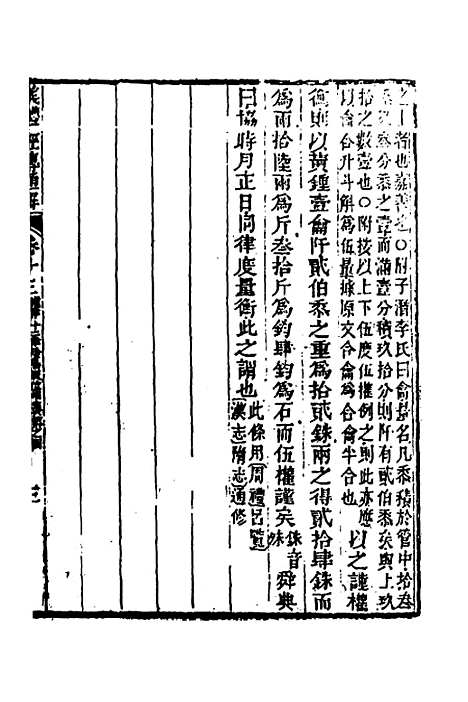 之上者也嘉善也○附子潛李氏曰龠量名凡黍積於管中拾叁
黍玖叁分黍之壹而滿壹分積玖拾分則阡有貳伯黍矣與上玖
拾之數壹也○附按以上下伍度伍權例之則此亦應
以龠合升斗斛爲伍量據原文合龠爲合龠半合也 以之謹權
衡則以黃鍾壹龠阡貳伯黍之重爲拾貳銖兩之得貳拾肆銖而
爲兩拾陸兩爲斤叁拾斤爲鈞肆鈞爲石而伍權謹矣 銖音殊 舜典
曰協時月正日同律度量衡此之謂也 此條用周禮呂覽漢志隋志通修
儀禮經傳通解 卷十三